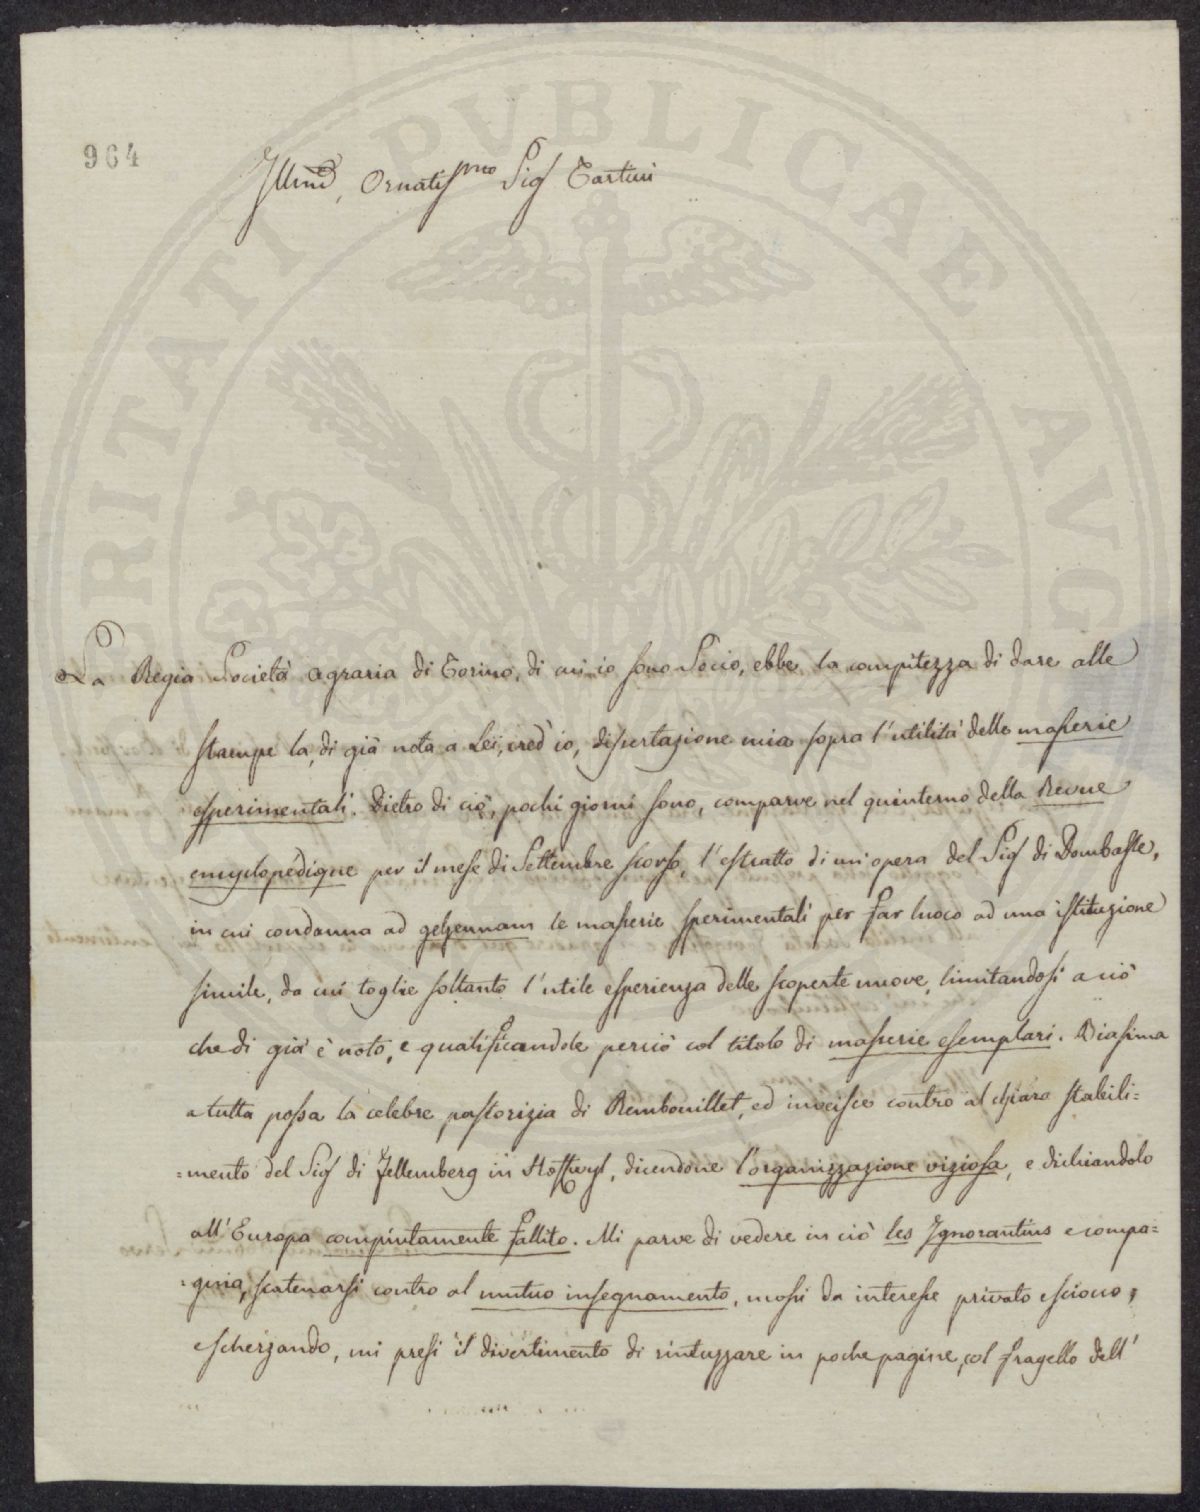 964
Illmo, Ornatismo Sig Tartini
La Regia Società Agraria di Torino, di cui io sono Socio, ebbe la compitezza di dare alle
stampe la, di già nota a Lei, cred' io, disertazione mia sopra l'utilità delle masserie
esperimentali. Dietro di ciò, pochi giorni sono, comparve nel quinterno della Revue
encyclopédique per il mese di Settembre scorso, l'estratto di un'opera del Sig di Dombasle,
in cui condanna ad gehennam le masserie sperimentali per far luoco ad una istituzione
simile, da cui toglie soltanto l'utile esperienza delle scoperte nuove, limitandosi a ciò
che di già è noto, e qualificandole perciò col titolo di masserie esemplari. Biasima
a tutta possa la celebre pastorizia di Rembouillet, ed inveisce contro al chiaro stabili=
=mento del Sig di Fellemberg in Hoffwyl, dicendone l'organizzazione viziosa, e dichiandolo
all'Europa compiutamente fallito. Mi parve di vedere in ciò les Ignorantins e compa=
=gnia, scatenarsi contro al mutuo insegnamento, mossi da interesse privato e sciocco,
e scherzando, mi presi il divertimento di rintuzzare in poche pagine, col fragello dell'
PVBLICAE